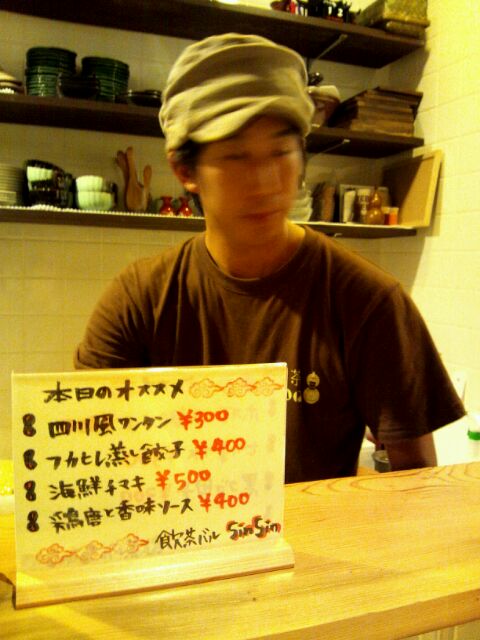 本日のオススメ
四川風ワンタン ¥300
フカヒレ蒸し餃子 ¥400
海鮮チマキ ¥500
鶏唐と香味ソース ¥400
飲茶バル SinSin